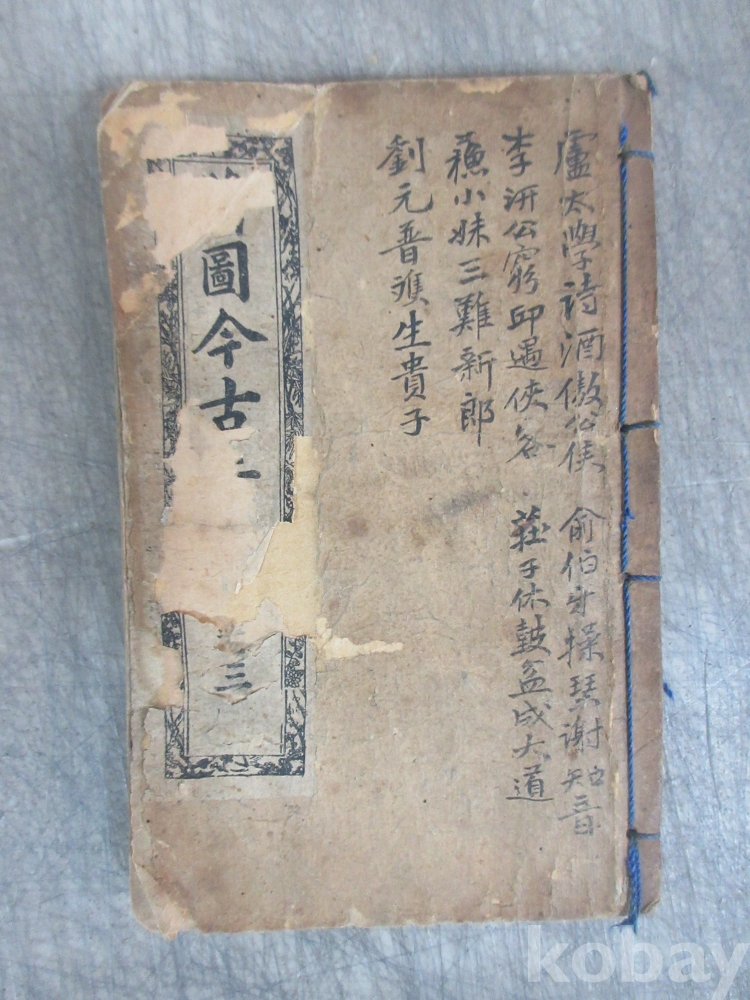 盧太學詩酒傲公侯 俞伯牙操琴謝知音
李汧公窮邱遇俠客 莊子休鼓盆成大道
蘓小妹三難新郎
劉元普雙生貴子
圖今古
三
kobay